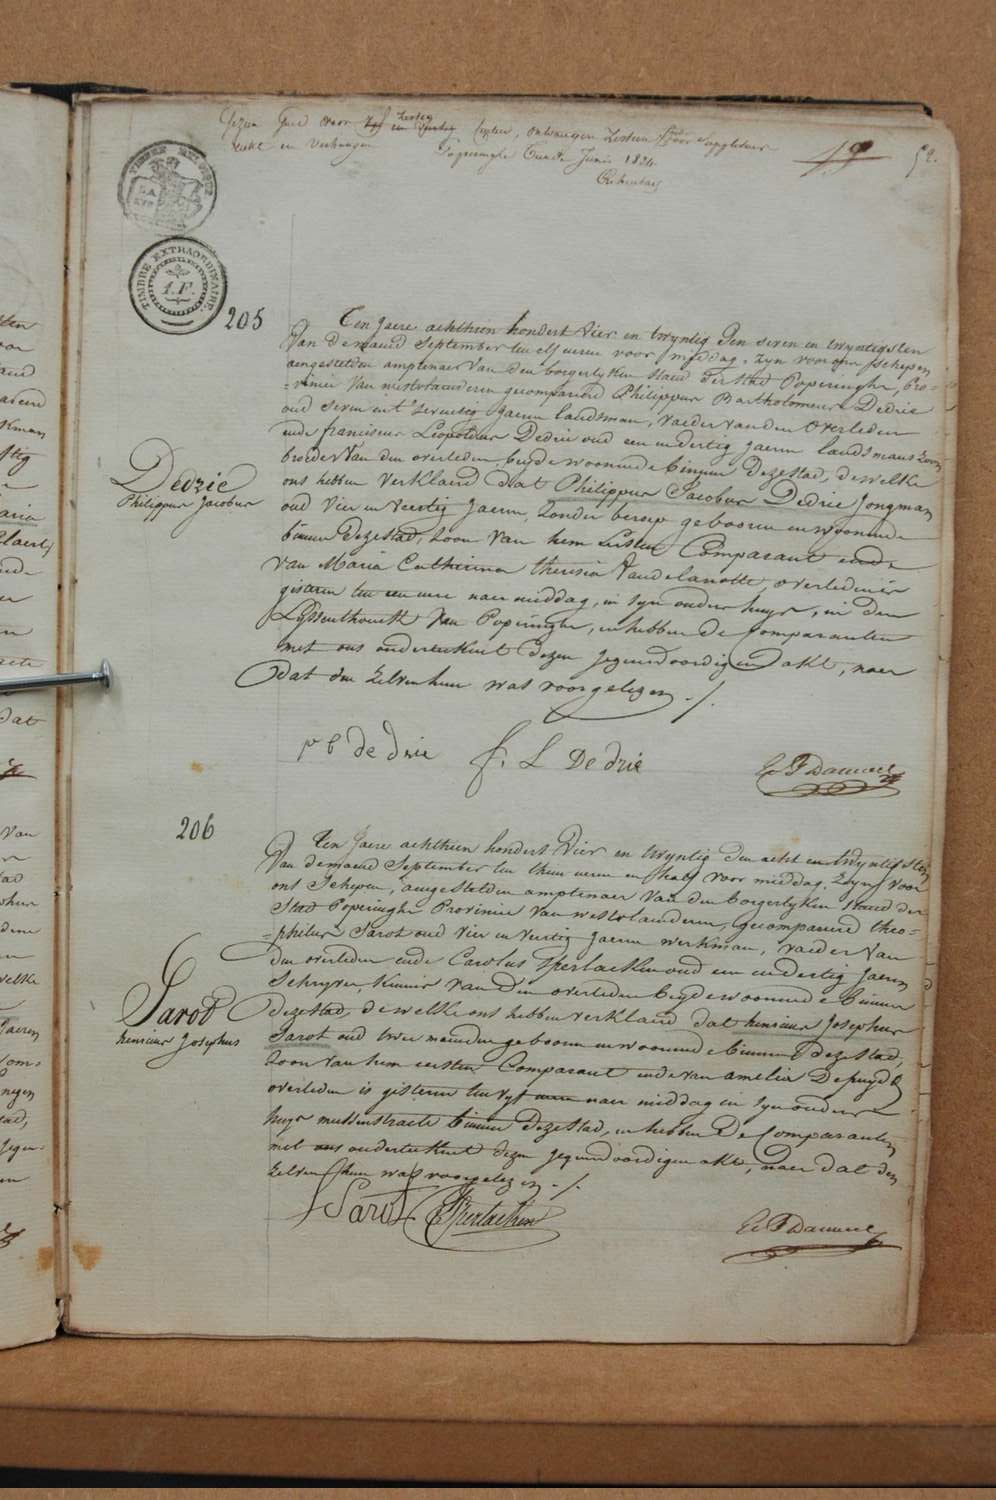 Gezien Goed voor zestig centen, ontvangen zestien voor suppletoir
Poperinghe den Junii 1824
19
52.
TIMBRE EXTRAORDINAIRE
1.F.
205
Ten Jaere achthien hondert Vier en twyntig Den seven en twyntigsten
Van de maend September ten elf ueren voor middag, zyn voor ons schepen
aengestelden amptenaer Van den borgerlyken staed der stad Poperinghe, Pro-
=vincie Van westvlaenderen gecompareerd Philippus Bartholomeus Dedrie
oud seven en t'zeventig Jaeren landsman, vaeder van den Overleden
ende franciscus Leopoldus Dedrie oud een en dertig Jaeren landsmans zoon
broeder Van den overleden, beyde woonende binnen Deze stad, dewelke
ons hebben Verklaerd dat Philippus Jacobus Dedrie Jongman
oud Vier en Veertig Jaeren, zonder beroep geboren en woonende
binnen Deze stad, zoon Van hem Eersten Comparant ende
Van Maria Catherina theresia Vandelanotte, overleden is
gisteren ten een ure naer middag, in zyn ouders huys, in den
Lyssenthoeck Van Poperinghe, en hebben de Comparanten
met ons onderteekent dezen Jegenwoordigen akt, naer
dat den zelven hun was voorgelezen ./.
Dedrie
Philippus Jacobus
p b de drie
f. L De drie
206
Ten Jaere achthien hondert Vier en twyntig Den acht en twyntigsten
Van de maend September ten thien ueren en half voor middag, Zyn voor
ons Schepen, aengestelden amptenaer Van den borgerlyken Staed der
Stad Poperinghe Provincie Van westvlaenderen, gecompareerd theo=
=philus Sarot oud Vier en Veertig Jaeren werkman, Vaeder Van
den overleden ende Carolus Sperlaeken oud een en dertig Jaeren
Schryver, Kennis Van den overleden beyde woonende binnen
deze stad, dewelke ons hebben verklaerd dat henricus Josephus
Sarot oud twee maenden geboren en woonende binnen Deze stad,
zoon van hem eersten Comparant ende van amelia Depuydt
overleden is gisteren ten vyf uren naer middag en zyn ouders
huys mussenstraete binnen Deze stad, en hebben De Comparanten
met ons onderteekent dezen Jegenwoordigen akt, naer dat den
Zelven hun was voorgelezen ./.
Sarot
henricus Josephus
Sarot
C Sperlaeken